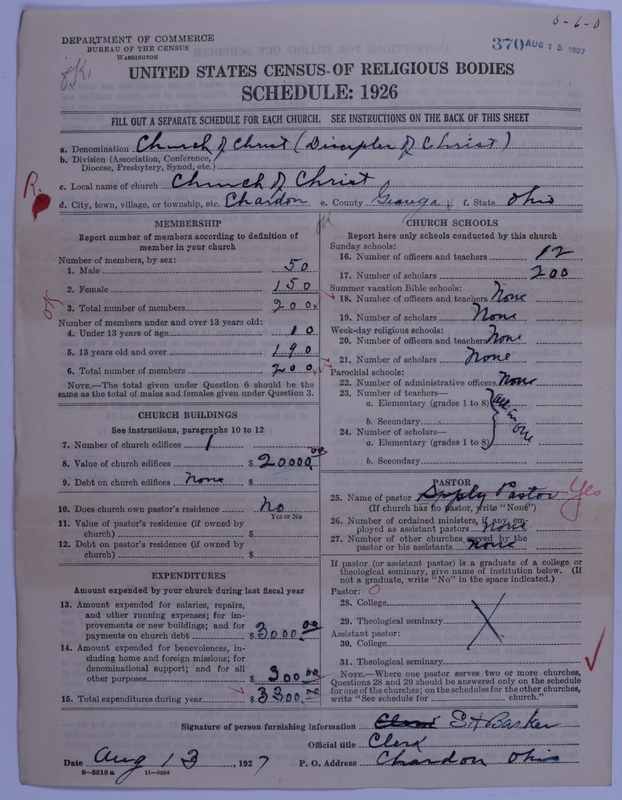 0-6-0
DEPARTMENT OF COMMERCE
BUREAU OF THE CENSUS
WASHINGTON
370 AUG 15 1927
O.K.
UNITED STATES CENSUS OF RELIGIOUS BODIES
SCHEDULE: 1926
FILL OUT A SEPARATE SCHEDULE FOR EACH CHURCH. SEE INSTRUCTIONS ON THE BACK OF THIS SHEET
a. Denomination Church of Christ (Disciples of Christ)
b. Division (Association, Conference, Diocese, Presbytery, Synod, etc.)
R.
c. Local name of church Church of Christ
d. City, town, village, or township, etc. Chardon e. County Geauga f. State Ohio
MEMBERSHIP
Report number of members according to definition of member in your church
Number of members, by sex:
1. Male 50
2. Female 150
3. Total number of members 200
Number of members under and over 13 years old:
4. Under 13 years of age 10
5. 13 years old and over 190
6. Total number of members 200
NOTE.—The total given under Question 6 should be the same as the total of males and females given under Question 3.
CHURCH BUILDINGS
See instructions, paragraphs 10 to 12
7. Number of church edifices 1
8. Value of church edifices $ 20000.00
9. Debt on church edifices None $
10. Does church own pastor's residence No
Yes or No
11. Value of pastor's residence (if owned by church) $
12. Debt on pastor's residence (if owned by church) $
EXPENDITURES
Amount expended by your church during last fiscal year
13. Amount expended for salaries, repairs, and other running expenses; for improvements or new buildings; and for payments on church debt $ 3000.00
14. Amount expended for benevolences, including home and foreign missions; for denominational support; and for all other purposes 300.00
15. Total expenditures during year $ 3300.00
CHURCH SCHOOLS
Report here only schools conducted by this church
Sunday schools:
16. Number of officers and teachers 12
17. Number of scholars 200
Summer vacation Bible schools:
18. Number of officers and teachers None
19. Number of scholars None
Week-day religious schools:
20. Number of officers and teachers None
21. Number of scholars None
Parochial schools:
22. Number of administrative officers None
23. Number of teachers—
a. Elementary (grades 1 to 8)
b. Secondary
24. Number of scholars—
a. Elementary (grades 1 to 8)
b. Secondary
All in one
PASTOR
25. Name of pastor Supply Pastor Yes
(If church has no pastor, write "None")
26. Number of ordained ministers, if any, employed as assistant pastors None
27. Number of other churches served by the pastor or his assistants None
If pastor (or assistant pastor) is a graduate of a college or theological seminary, give name of institution below. (If not a graduate, write "No" in the space indicated.)
Pastor: O
28. College
29. Theological seminary
Assistant pastor:
30. College
31. Theological seminary
NOTE.—Where one pastor serves two or more churches, Questions 28 and 29 should be answered only on the schedule for one of the churches; on the schedules for the other churches, write "See schedule for church."
Signature of person furnishing information E H Barker
Official title Clerk
Date Aug 13, 1927 P. O. Address Chardon Ohio
8—5518a 11—9054